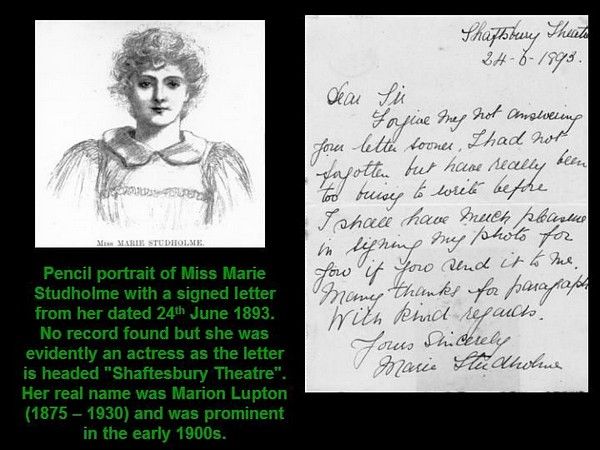 Miss MARIE STUDHOLME.
Pencil portrait of Miss Marie
Studholme with a signed letter
from her dated 24th June 1893.
No record found but she was
evidently an actress as the letter
is headed "Shaftesbury Theatre".
Her real name was Marion Lupton
(1875 – 1930) and was prominent
in the early 1900s.
Shaftsbury Theatre
24-6-1893.
Dear Sir
Forgive my not answering
your letter sooner, I had not
forgotten but have really been
too buisy to write before
I shall have much pleasure
in signing my photo for
you if you send it to me.
Many thanks for paragraph
With kind regards.
Yours Sincerely
Marie Studholme